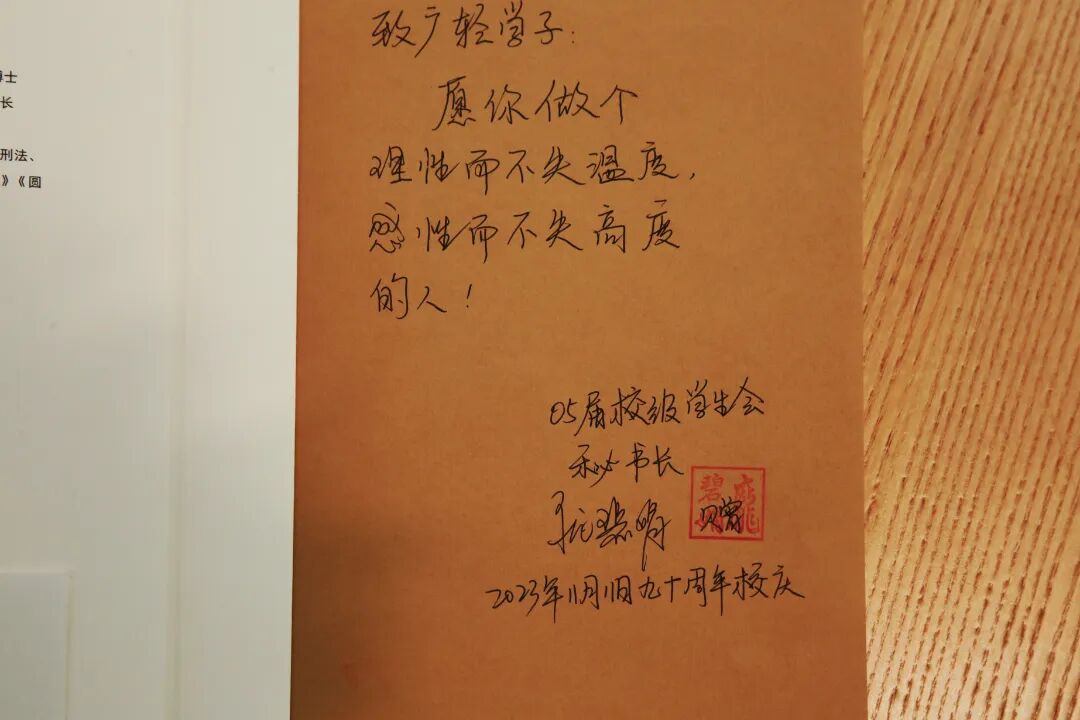 博士
长
刑法、
》《圆
致广轻学子:
愿你做个
理性而不失温度,
感性而不失高度
的人!
05届校级学生会
秘书长
碧
赠
2023年11月11日九十周年校庆